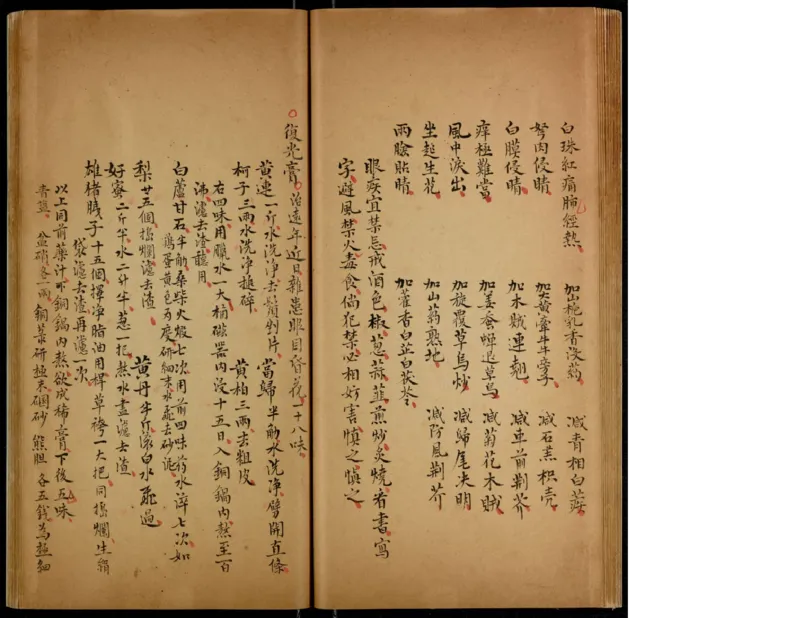 白珠紅痛肺經熱 加山梔乳香沒药 减青相白蒺
胬肉侵睛 加大黃牽牛旁子 减石羔枳壳
白膜侵睛 加木賊連翹 减車前荆芥
痒極難當 加姜蚕蟬退草烏 减菊花木賊
風中淚出 加旋覆草烏炒 减歸尾决明
坐起生花 加山药熟地 减防風荆芥
兩瞼貼睛 加藿香白芷白茯苓
眼疾宜禁忌戒酒色椒葱蒜韮煎炒炙燒看書寫
字避風禁火毒食倘犯禁必相妨害慎之慎之
復光膏 治遠年近日雜患眼目昏花 一十八味
黃連一斤水洗浄去鬚剉片 當歸半觔水洗浄劈開直條
柯子三兩水洗浄搥碎 黃柏三兩去粗皮
右四味用臘水一大桶磁器内浸十五日入銅鍋内熬至百
沸濾去渣聽用
白蘆甘石半觔桑柴火煅七次用前四味药水淬七次如
鷄蛋黃色為度研細末水飛去砂泥
梨廿五個搗爛濾去渣 黃丹半斤滚白水飛過
好蜜二斤半水二斤半葱一把熬水盡濾去渣
雄猪胰子十五個揮浄脂油用桿草 一大把同搗爛生絹
袋濾去渣再濾一次
以上同前藥汁下銅鍋内熬欲成稀膏下後五味
青塩 盆硝各一兩 銅菉研極末 硇砂 熊胆 各五錢為極細